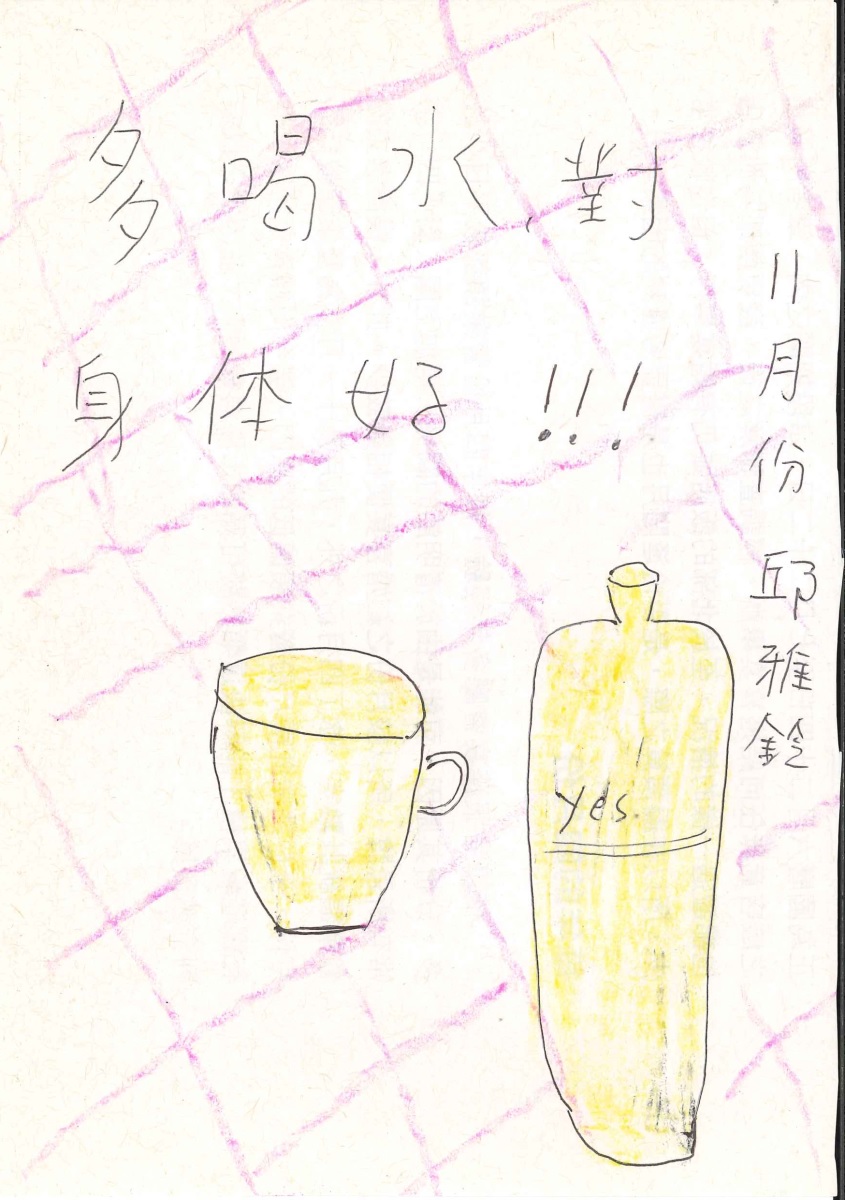 多喝水,對
身体好!!!
11月份 邱雅鈴
yes.